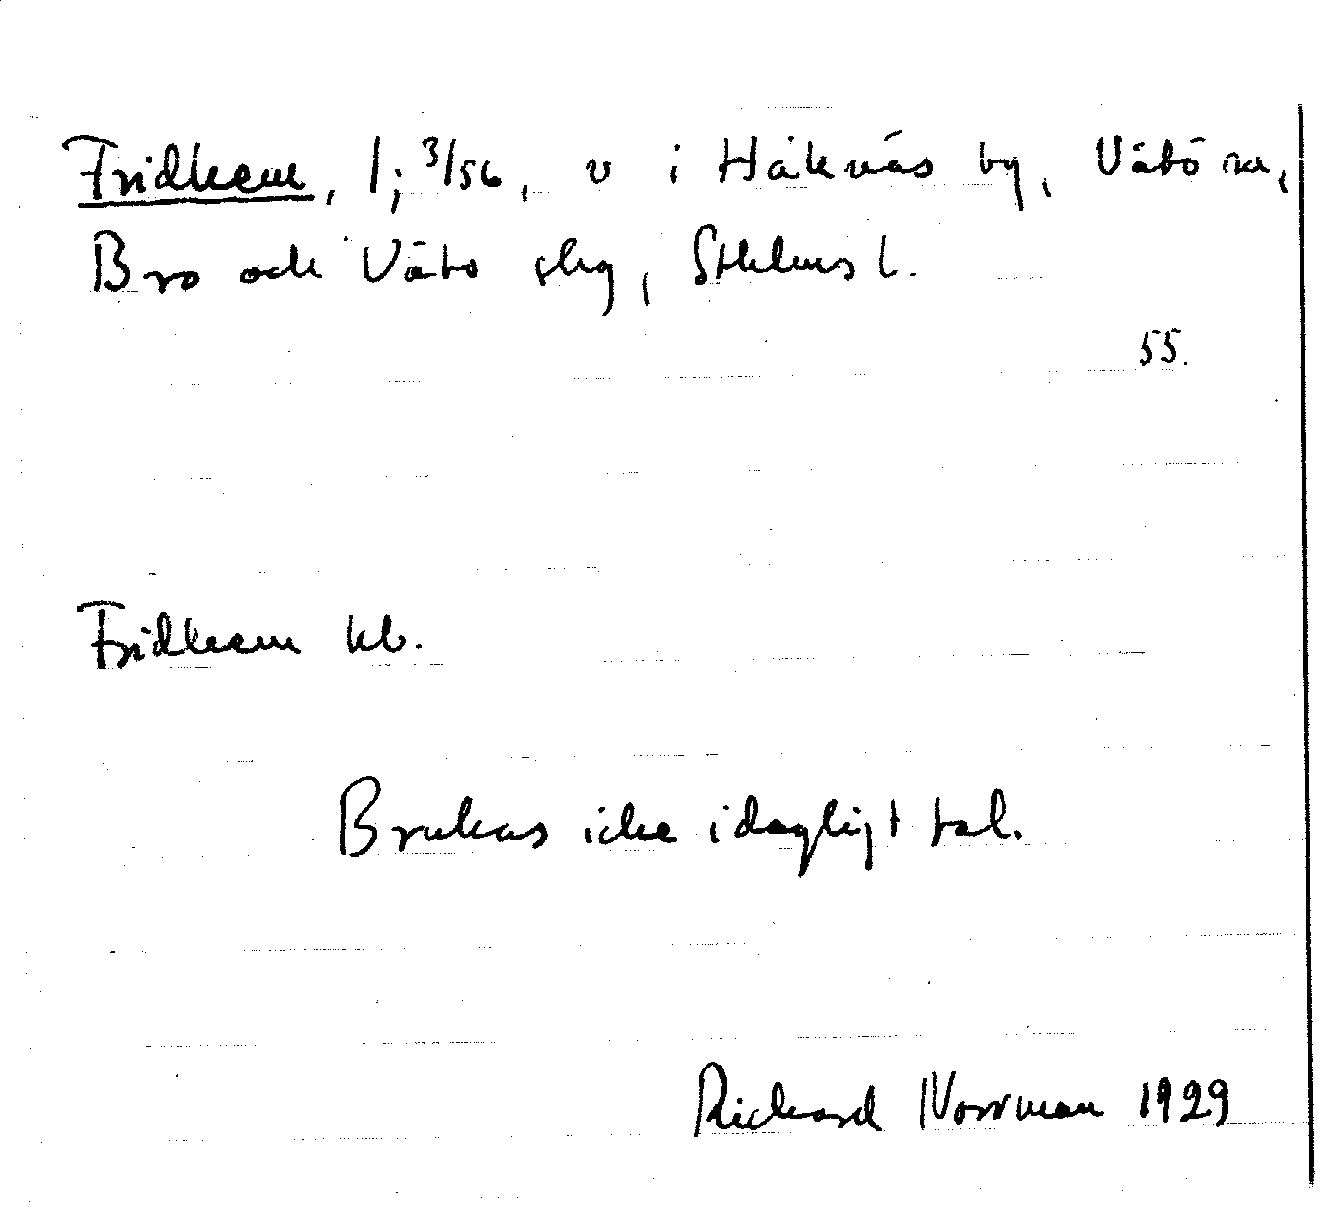 Fridhem, 1; 3/56, v i Håknäs by, Vätö sn,
Bro och Vätö slg, Sthlms l.
55.
Fridhem kb.
Brukas icke i dagligt tal.
Rickard Norrman 1929